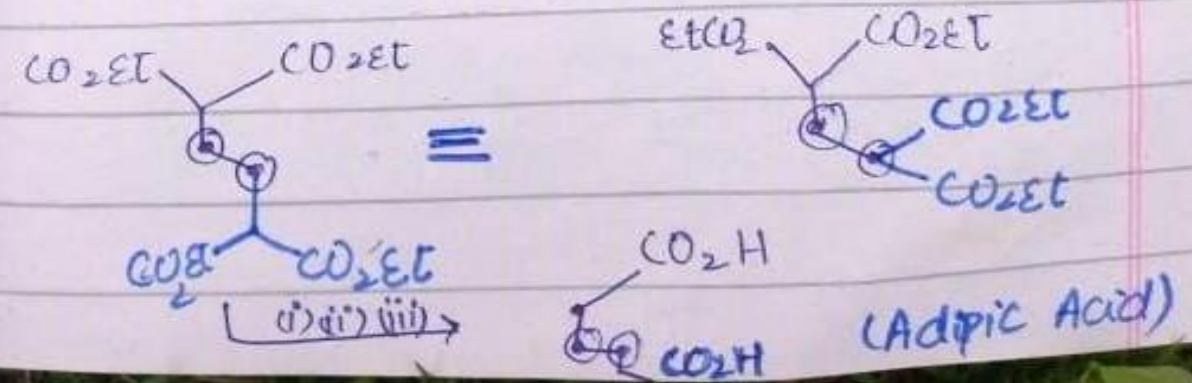 CO₂Et CO₂Et
EtCO₂ CO₂Et
≡
CO₂Et
CO₂Et
CO₂Et CO₂Et
(i) (ii) (iii)
CO₂H
CO₂H
(Adipic Acid)